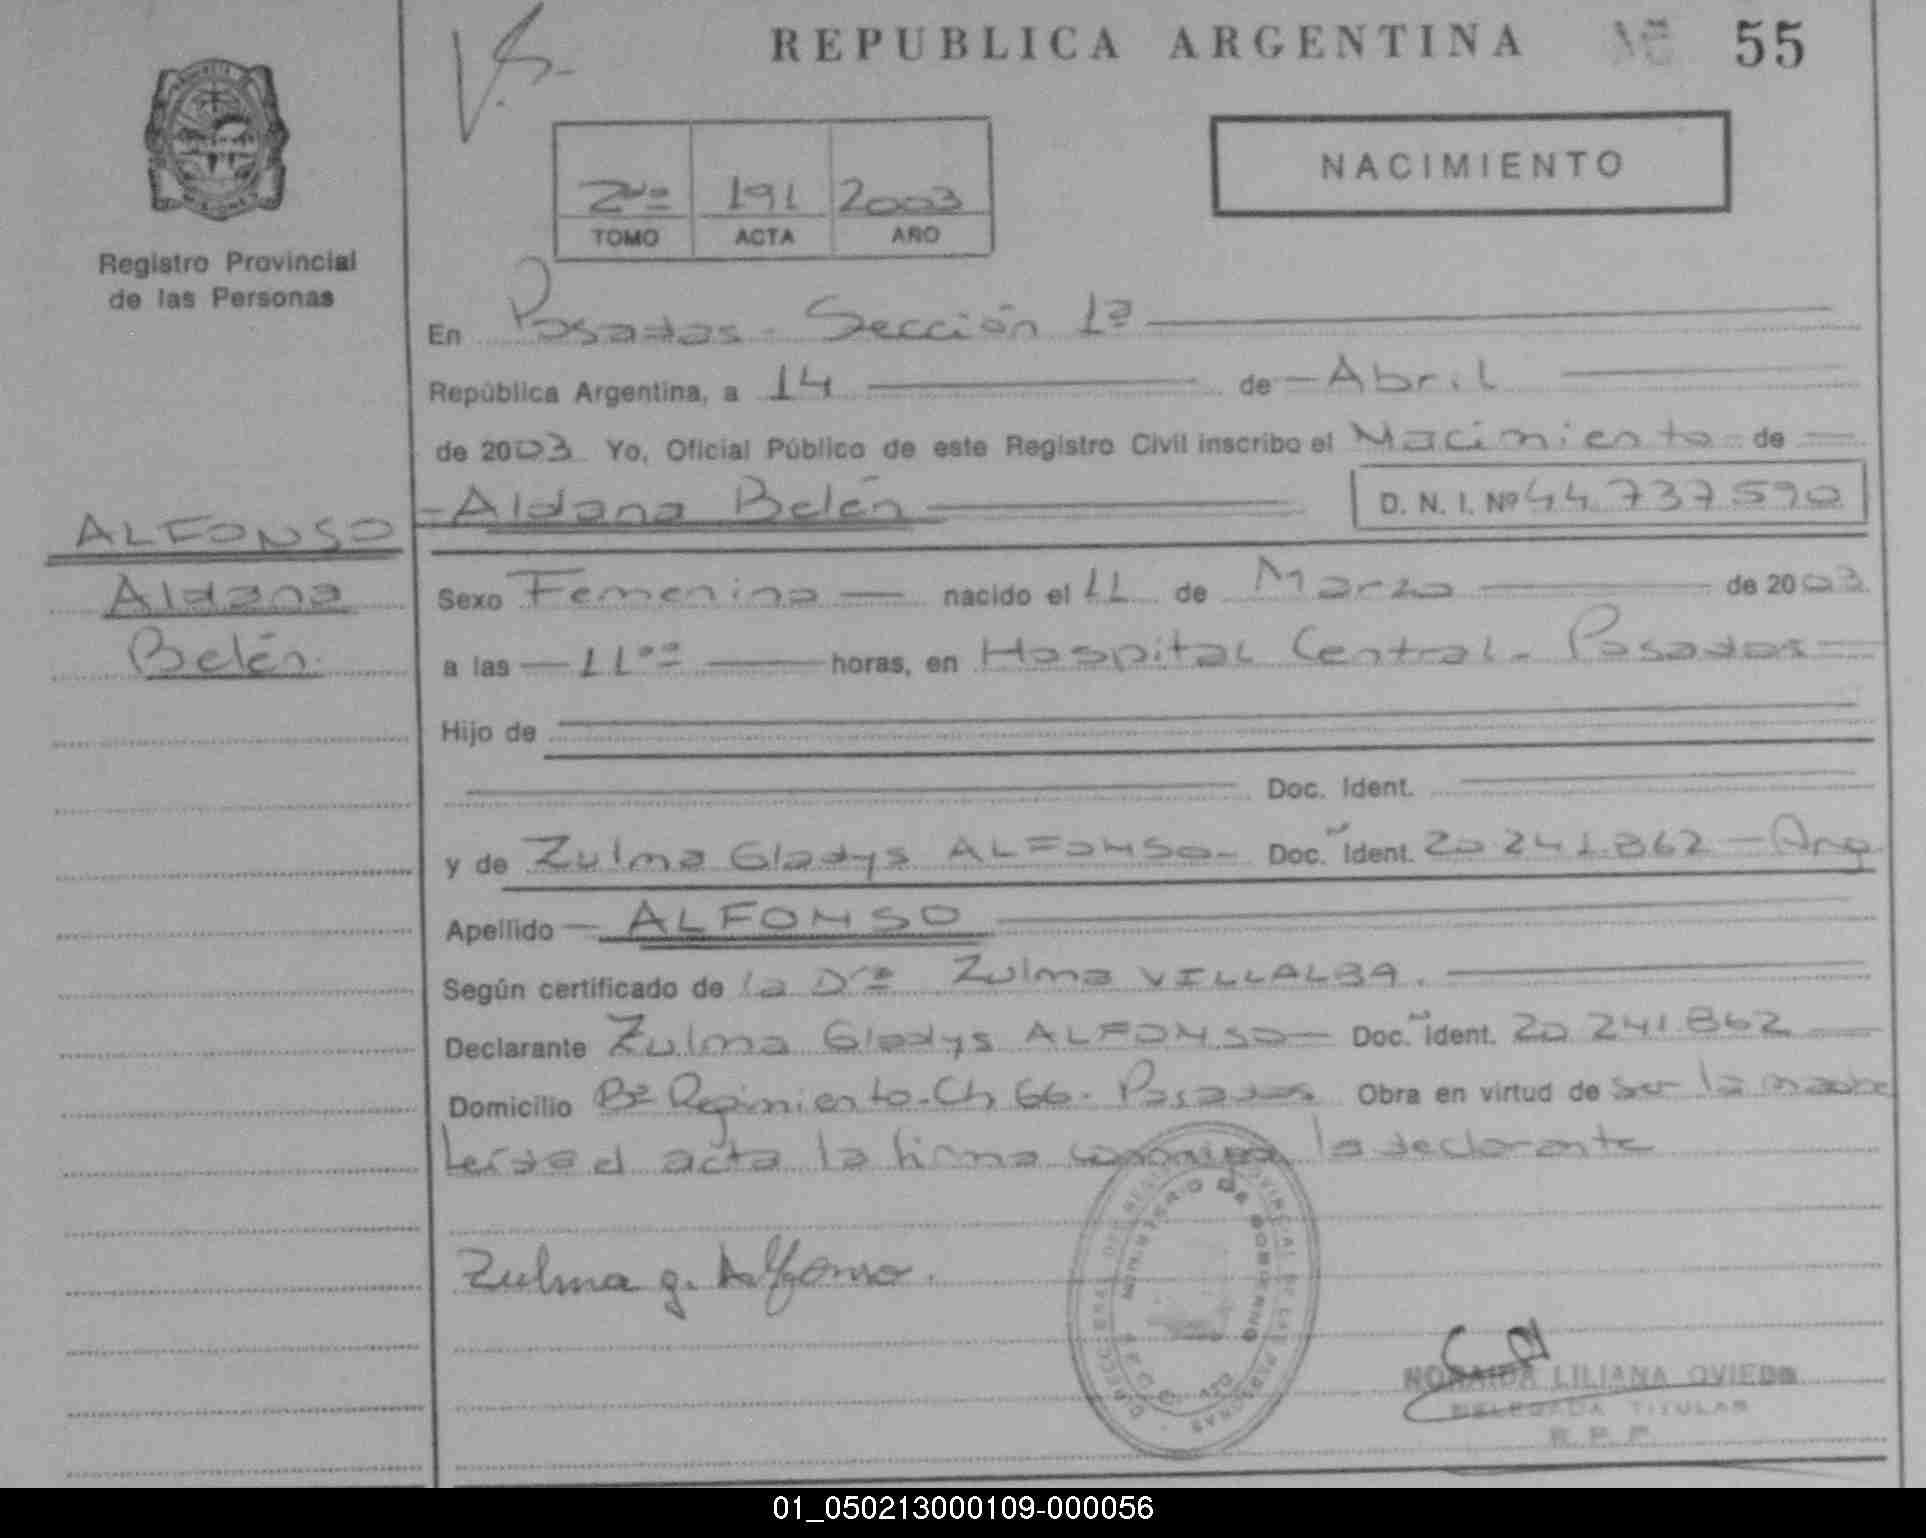 REPUBLICA ARGENTINA Nº 55
Registro Provincial
de las Personas
NACIMIENTO
2do 191 2003
TOMO ACTA AÑO
En Posadas - Sección 1ª
República Argentina, a 14 de Abril
de 2003 Yo, Oficial Público de este Registro Civil inscribo el Nacimiento de
Aldana Belén D. N. I. Nº 44.737.590
ALFONSO
Aldana
Belén
Sexo Femenino nacido el 11 de Marzo de 2003
a las 11oo horas, en Hospital Central - Posadas
Hijo de
Doc. Ident.
y de Zulma Gladys ALFONSO - Doc. Ident. 20.241.862 - Arg
Apellido ALFONSO
Según certificado de la Dra Zulma VILLALBA.
Declarante Zulma Gladys ALFONSO - Doc. Ident. 20.241.862
Domicilio Bº Regimiento - Ch 66 - Posadas Obra en virtud de ser la madre
Leída el acta la firma conmigo la declarante
Zulma g. Alfonso.
MINISTERIO DE GOBIERNO
LILIANA OVIEDO
DELEGADA TITULAR
R. P. P.
01_050213000109-000056